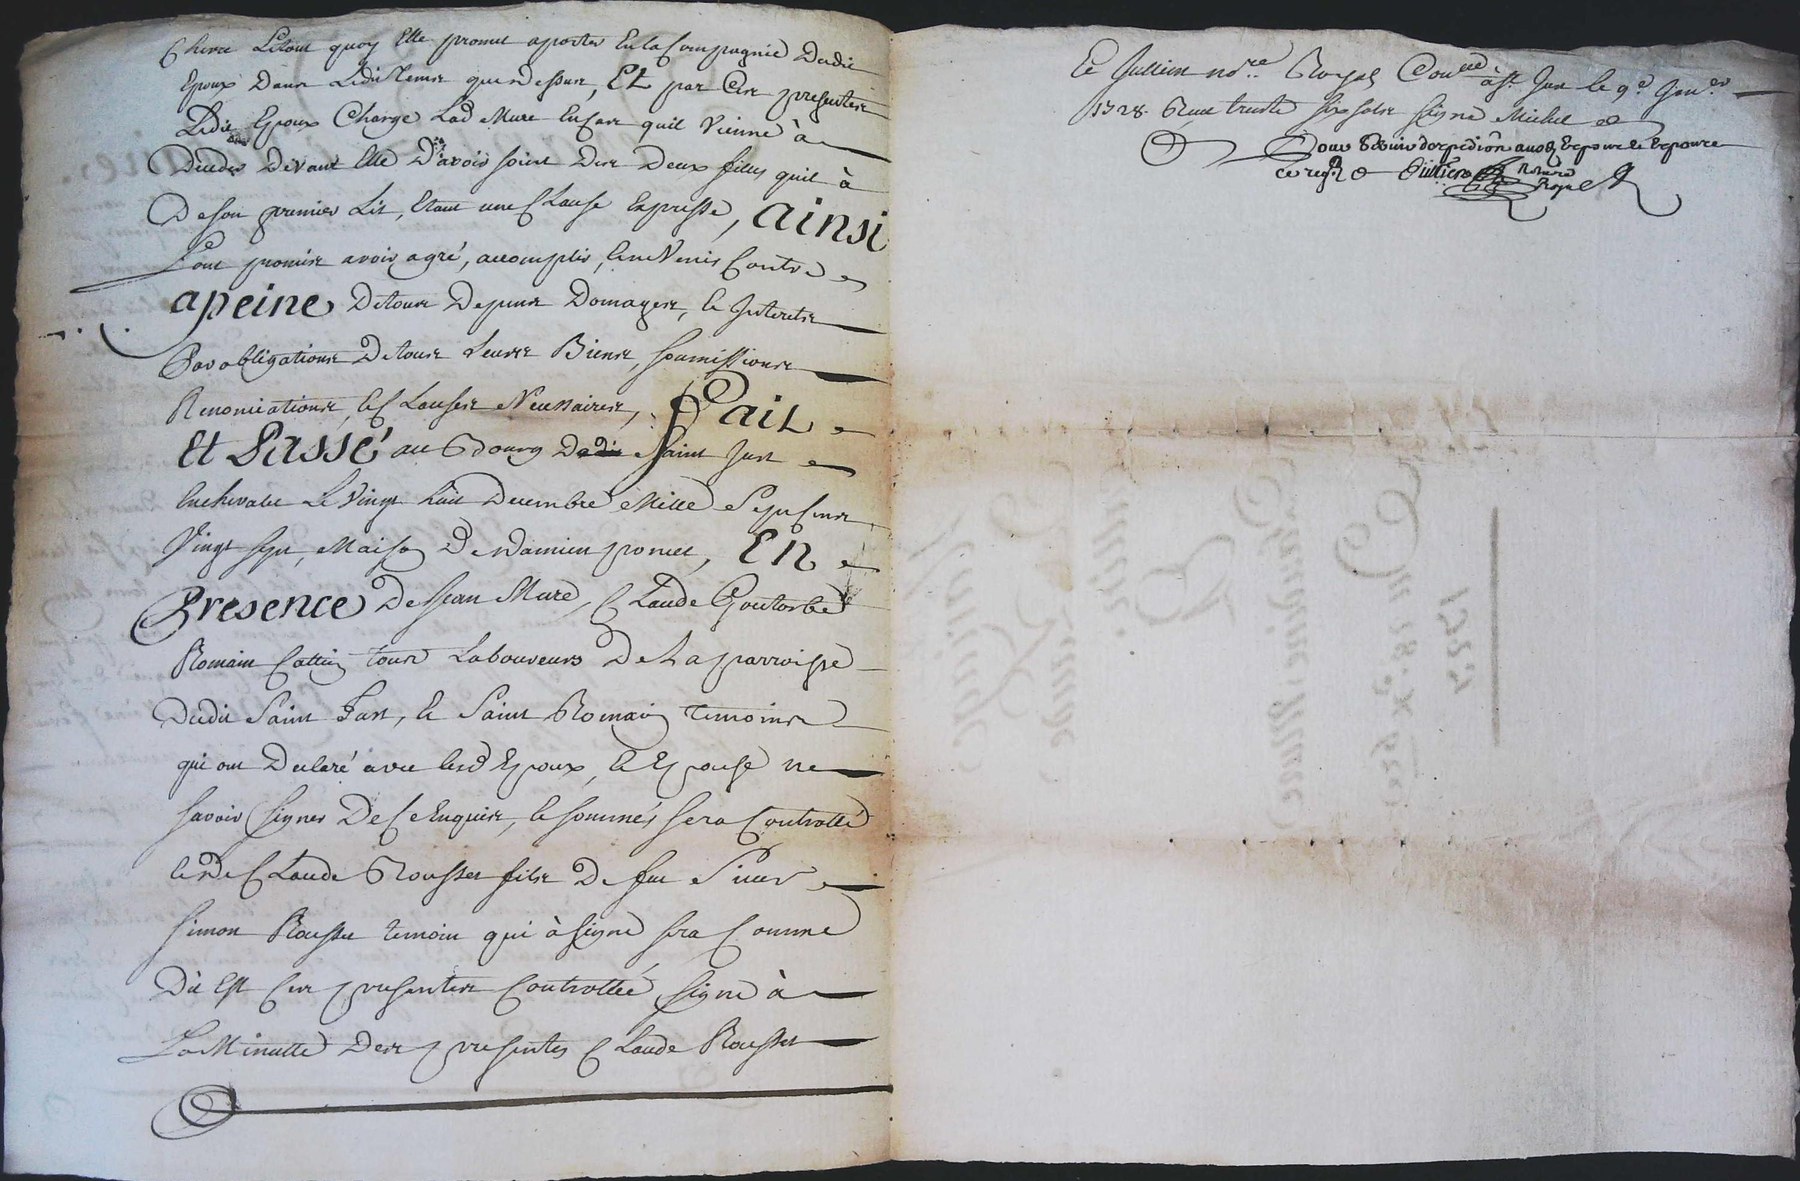 Chene Letout quoy Elle promet aporter En la Compagnie Dudit
Epoux Dans Ledit Terme que dessus, Et par Ces presentes
Ledit Epoux Charge Lad Mure En Cas quil Vienne à
Deceder Devant Elle D'avoir soint Des Deux filles quil à
De son premier Lit, Etant une Clause Expresse, ainsi
Lont promis avoir agré, accomplir, Et ne Venir Contre
apeine De tous Depens Domages, et Interets
Par obligations De tous Leurs Biens, soumissions
Renonciations, et Clauses Necessaires, Fait
Et Passé au Bourg Dudit Saint Just
En chevalet Le Vingt huit Decembre Mille Sept Cens
Vingt sept, Maison De Damien poncet, En
Presence De Jean Mure, Claude Goutorbe
Romain Cattin tous Laboureurs De La parroisse
Dudit Saint Just, et Saint Romain temoins
qui ont Declaré avec lesd Epoux, et Epouse ne
savoir signer De Ce Enquis, et sommés sera Controllé
et de Claude Rousset fils De feu Sieur
Simon Rousset temoin qui à signé sera Comme
Dit Est Ces presentes Controllée, signé à
La Minutte Des presentes Claude Rousset
Et Jullien no.re Royal Con.llé à St Just le 9.e Jan.er
1728. Reçu trente six sols signé Michel
Pour Expedion aux Epoux et Epouse
ce req.t Jullien Notaire
Royal